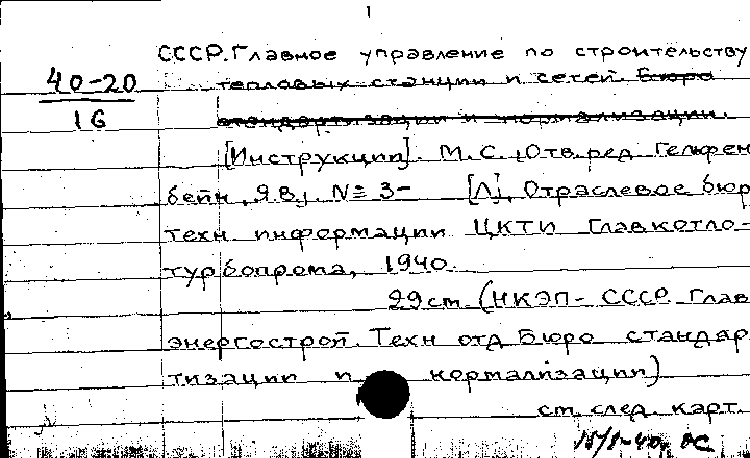 1
СССР. Главное управление по строительству
40-20
16
тепловых станции и сетей. Бюро
стандартизации и нормализации.
[Инструкции]. М.С., Отв. ред. Гельфен
бейн, Я.В., № 3- [Л], Отраслевое бюр
техн информации ЦКТИ Главкотло-
турбопрома, 1940.
29см. (НКЭП-СССР. Глав
энергострой. Техн отд Бюро стандар
тизации и нормализации)
см. след. карт.